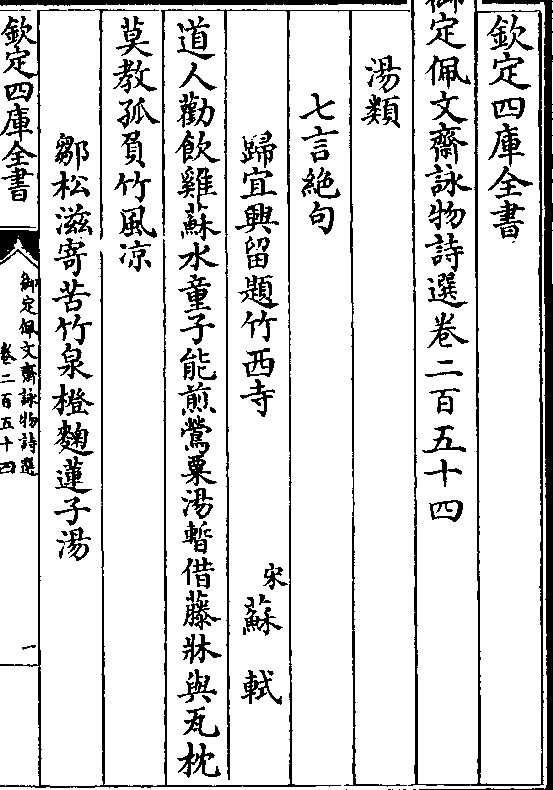 欽定四庫全書
御定佩文齋詠物詩選卷二百五十四
湯類
七言絶句
歸宜興留題竹西寺 宋 蘇軾
道人勸飲雞蘇水童子能煎鶯粟湯暫借藤牀與瓦枕
莫教孤負竹風凉
鄒松滋寄苦竹泉橙麴蓮子湯
欽定四庫全書
御定佩文齋詠物詩選
卷二百五十四
一